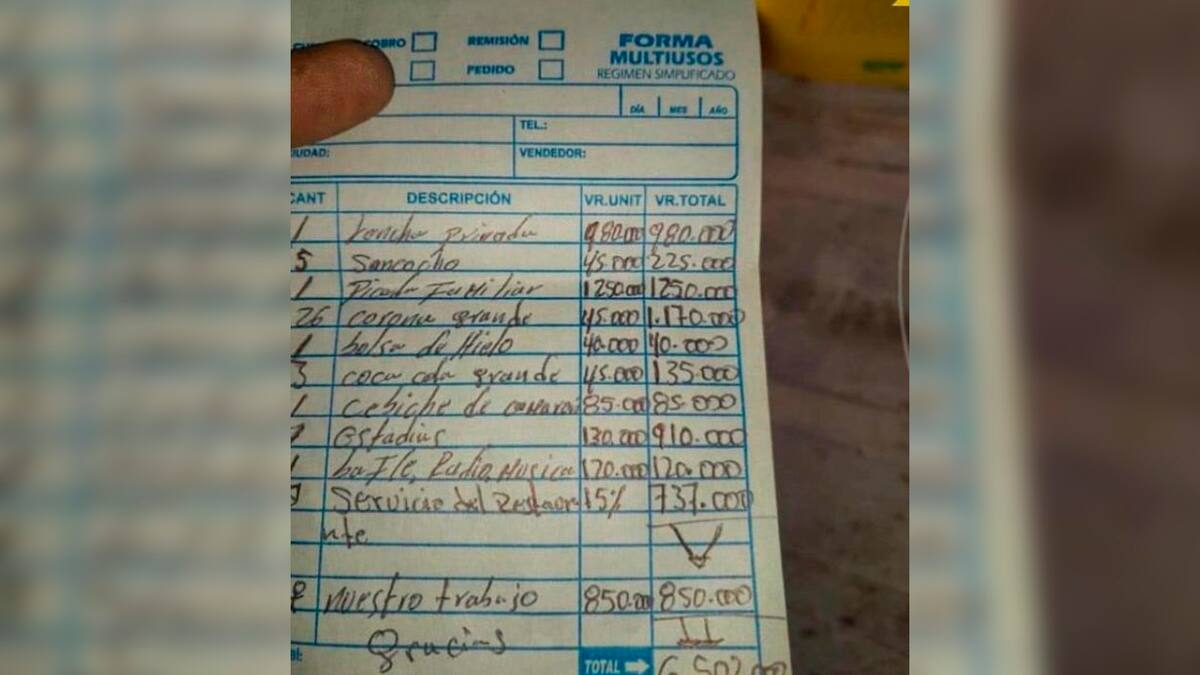 COBRO REMISIÓN FORMA
MULTIUSOS
PEDIDO REGIMEN SIMPLIFICADO
DÍA MES AÑO
TEL.:
VENDEDOR:
CANT DESCRIPCIÓN VR.UNIT VR.TOTAL
1 Lancha privada 980.000 980.000
5 Sancocho 45.000 225.000
1 Picada Familiar 1250.000 1250.000
26 corona grande 45.000 1.170.000
1 bolsa de Hielo 40.000 40.000
3 coca cola grande 45.000 135.000
1 cebiche de 85.000 85.000
7 estadias 130.000 910.000
1 baFle, Radio, Musica 120.000 120.000
Servicio del Restaura 15% 737.000
nte
nuestro trabajo 850.000 850.000
gracias
TOTAL 6.502.000